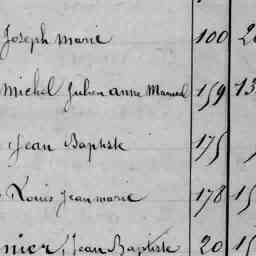 Joseph Marie 100
Michel Julien Anne Manuel 159 13
Jean Baptiste 175
Louis Jean Marie 178 15
nier, Jean Baptiste 20 15